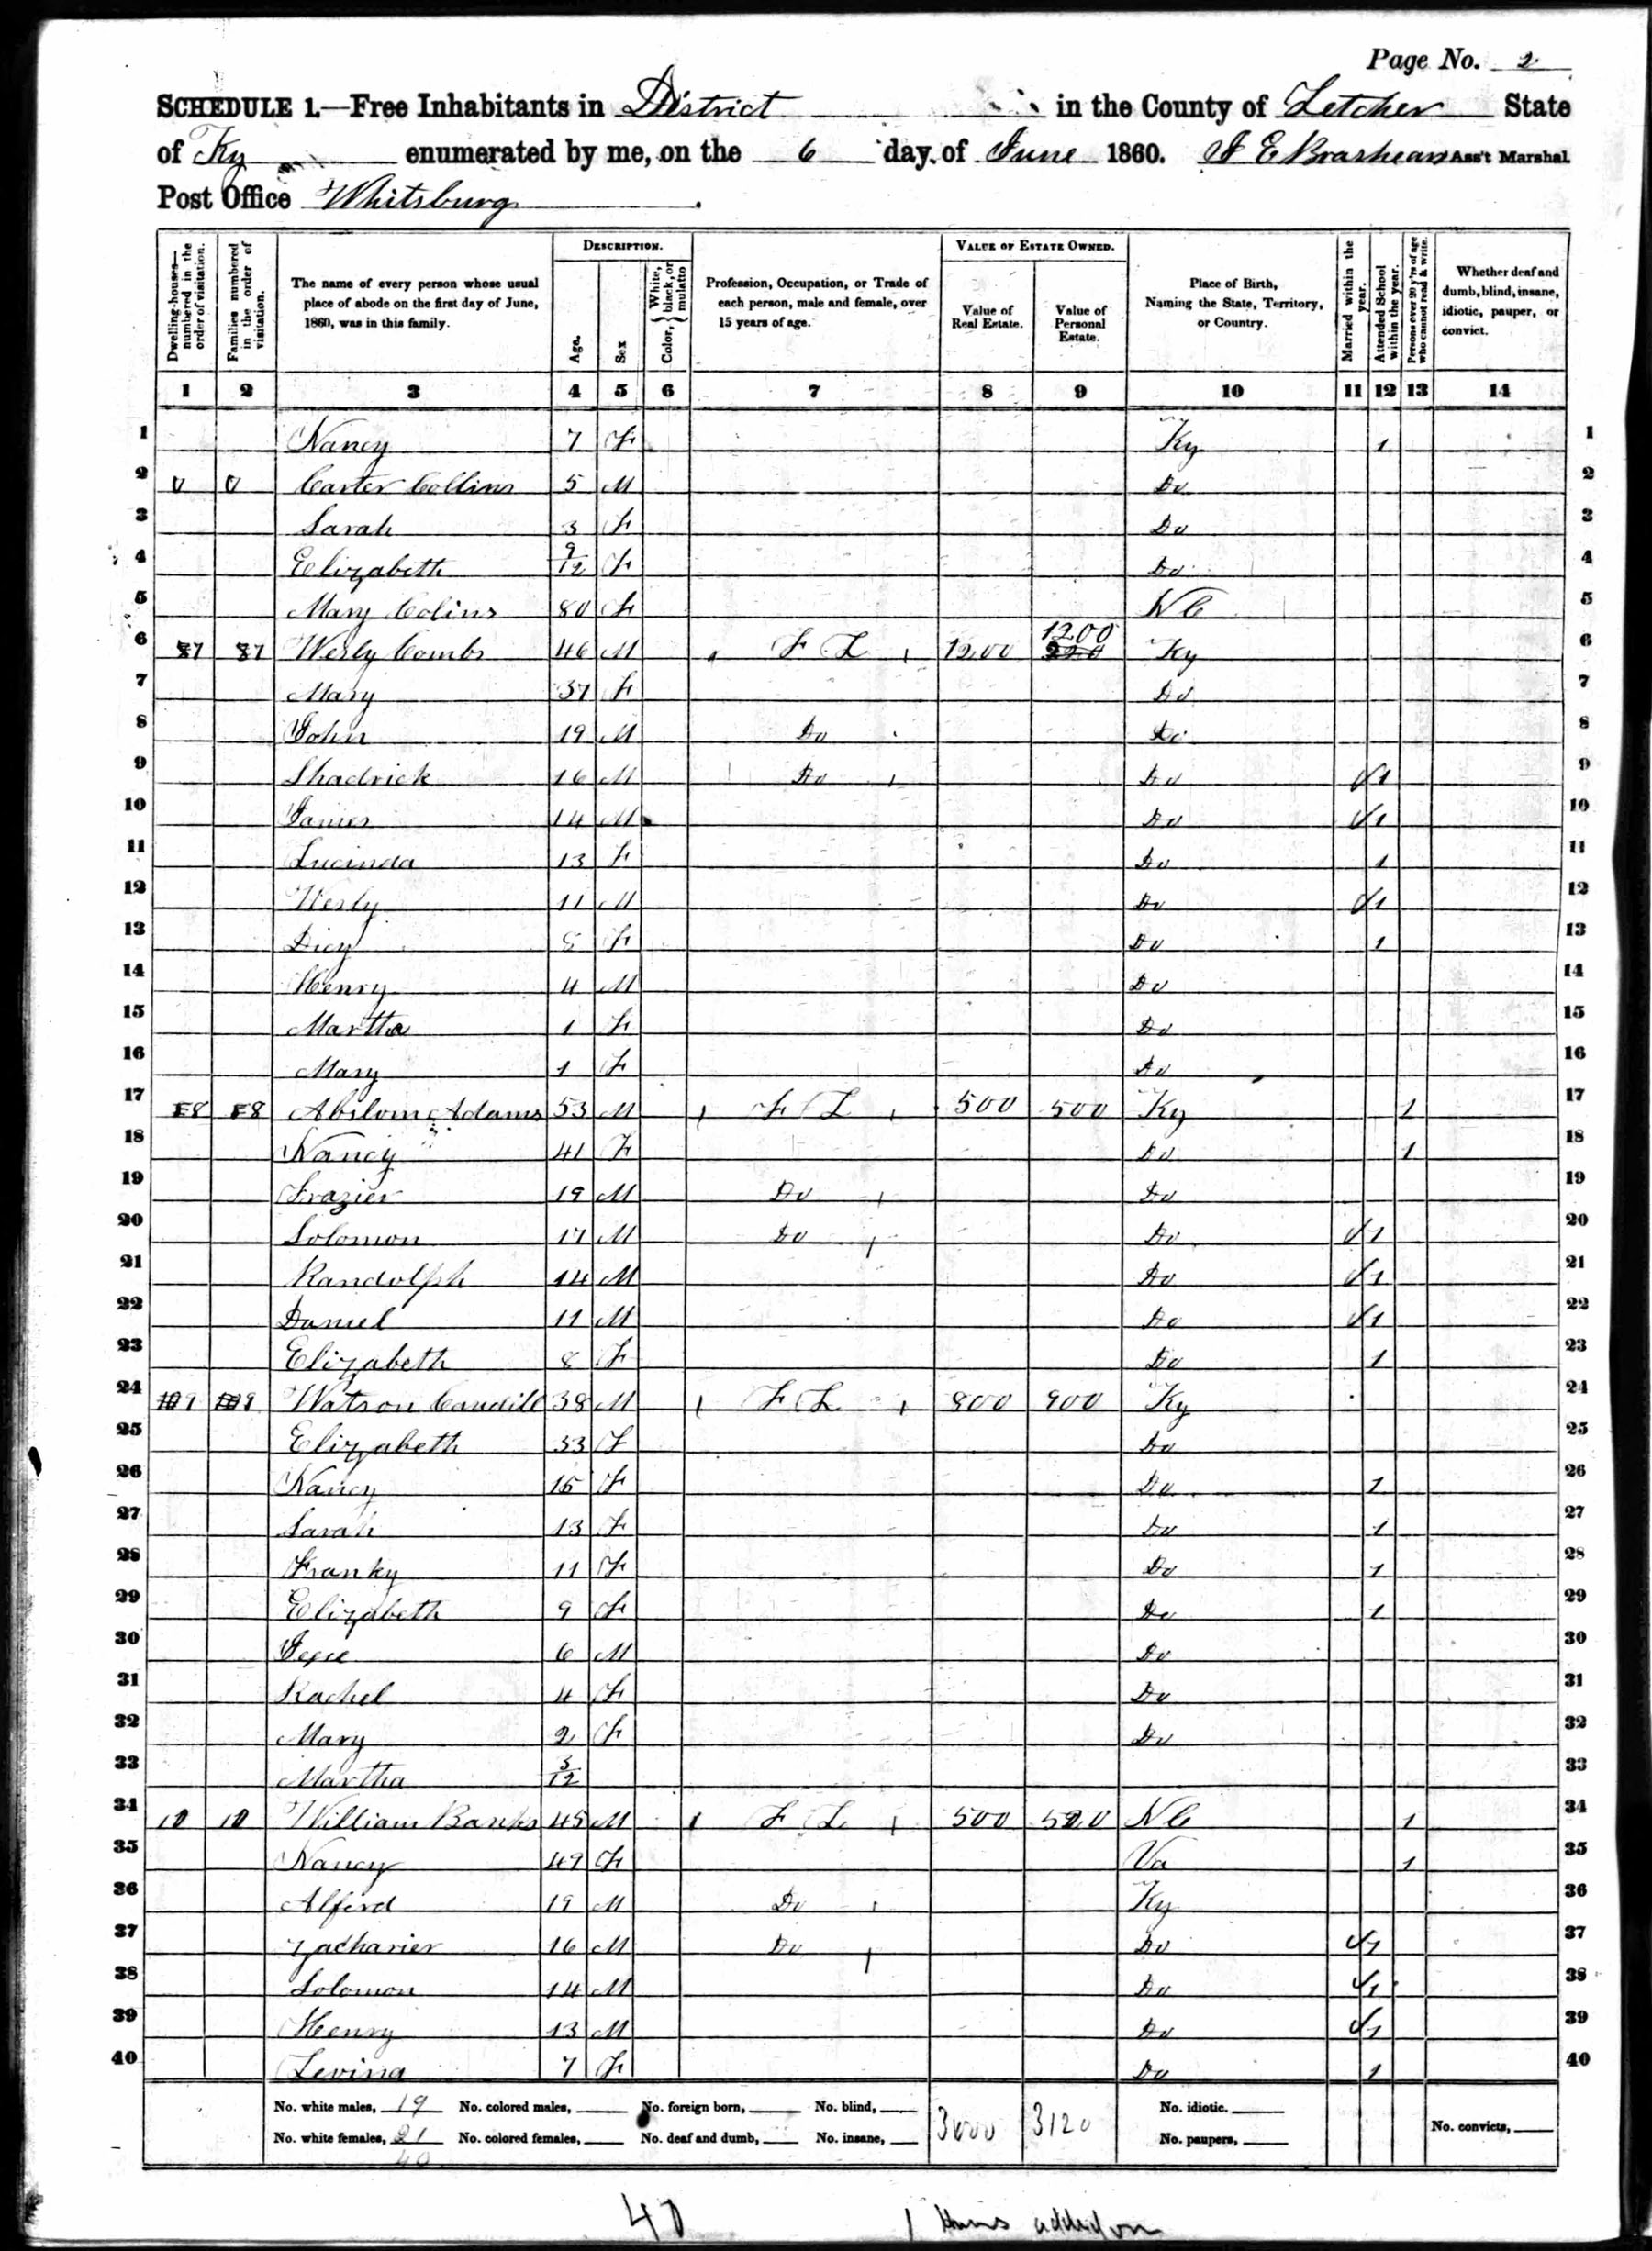 Page No. 2
SCHEDULE 1.—Free Inhabitants in District in the County of Letcher State
of Ky enumerated by me, on the 6 day of June 1860. Brashears Ass't Marshal
Post Office Whitsburg.
DESCRIPTION. VALUE OF ESTATE OWNED.
Dwelling-houses—numbered in the order of visitation. Families numbered in the order of visitation. The name of every person whose usual place of abode on the first day of June, 1860, was in this family. Age. Sex Color, { White, black, or mulatto Profession, Occupation, or Trade of each person, male and female, over 15 years of age. Value of Real Estate. Value of Personal Estate. Place of Birth, Naming the State, Territory, or Country. Married within the year. Attended School within the year. Persons over 20 y'rs of age who cannot read & write. Whether deaf and dumb, blind, insane, idiotic, pauper, or convict.
1 2 3 4 5 6 7 8 9 10 11 12 13 14
1 Nancy 7 F Ky 1 1
2 Carter Collins 5 M Do 2
3 Sarah 3 F Do 3
4 Elizabeth 9/12 F Do 4
5 Mary Colins 80 F NC 5
6 87 87 Wesly Combs 46 M F L 1200 1200 Ky 6
7 Mary 37 F Do 7
8 John 19 M Do Do 8
9 Shadrick 16 M Do Do 1 9
10 James 14 M Do 1 10
11 Lucinda 13 F Do 1 11
12 Wesly 11 M Do 1 12
13 Dicy 8 F Do 1 13
14 Henry 4 M Do 14
15 Martha 1 F Do 15
16 Mary 1 F Do 16
17 8 8 Abslom Adams 53 M F L 500 500 Ky 1 17
18 Nancy 41 F Do 1 18
19 Frazier 19 M Do Do 19
20 Solomon 17 M Do Do 1 20
21 Randolph 14 M Do 1 21
22 Daniel 11 M Do 1 22
23 Elizabeth 8 F Do 1 23
24 9 9 Watson Caudill 38 M F L 800 900 Ky 24
25 Elizabeth 33 F Do 25
26 Nancy 15 F Do 1 26
27 Sarah 13 F Do 1 27
28 Franky 11 F Do 1 28
29 Elizabeth 9 F Do 1 29
30 Jesse 6 M Do 30
31 Rachel 4 F Do 31
32 Mary 2 F Do 32
33 Martha 3/12 33
34 10 10 William Banks 45 M F L 500 520 NC 1 34
35 Nancy 49 F Va 1 35
36 Alferd 19 M Do Ky 36
37 Zacharier 16 M Do Do 1 37
38 Solomon 14 M Do 1 38
39 Henry 13 M Do 1 39
40 Levina 7 F Do 1 40
No. white males, 19 No. colored males, No. foreign born, No. blind, 3000 3120 No. idiotic.
No. white females, 21 No. colored females, No. deaf and dumb, No. insane, No. paupers, No. convicts,
40
40 1 added on